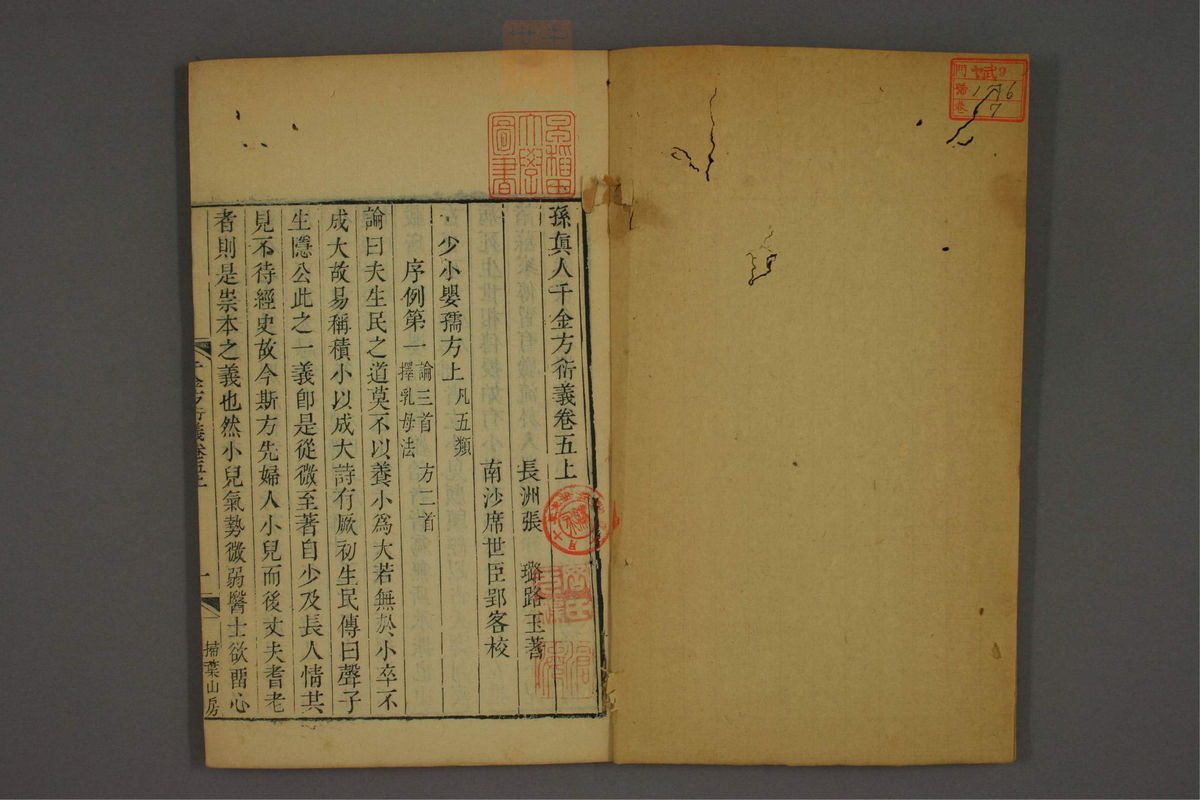 孫眞人千金方衍義卷五上
長洲張 璐路玉著
南沙席世臣郢客校
少小嬰孺方上凡五類
序例第一論三首 方二首
擇乳母法
論曰夫生民之道莫不以養小爲大若無於小卒不
成大故易稱積小以成大詩有厥初生民傳曰聲子
生隱公此之一義卽是從微至著自少及長人情共
見不待經史故今斯方先婦人小兒而後丈夫耆老
者則是崇本之義也然小兒氣勢微弱醫士欲留心
千金方衍義卷五上
一
掃葉山房
早稻田
大學
圖書
門
號
卷
176
7